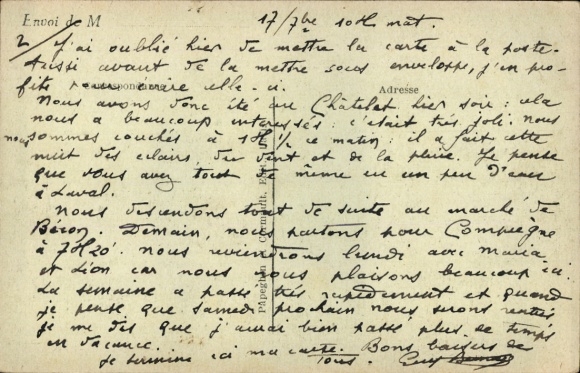 Envoi de M
17/7bre 10H mat.
2/ J'ai oublié hier de mettre la carte à la poste.
Aussi avant de la mettre sous enveloppe, j'en pro-
fite pour écrire celle-ci.
Correspondance
Adresse
Nous avons donc été au Châtelet hier soir : cela
nous a beaucoup intéressés : c'était très joli. Nous
nous sommes couchés à 10H 1/2 ce matin : il a fait cette
nuit des éclairs, du vent et de la pluie. Je pense
que vous avez tout de même eu un peu d'eau
à Laval.
Nous descendons tout de suite au marché de
Demain, nous partons pour Compiègne
à 7H20'. Nous reviendrons lundi avec Maria
et Léon car nous nous plaisons beaucoup ici.
La semaine a passé très rapidement et quand
je pense que samedi prochain nous serons rentrés
je me dis que j'aurai bien passé plus de temps
en vacance.
Je termine ici ma carte. Bons baisers de
tous.
Papeghin